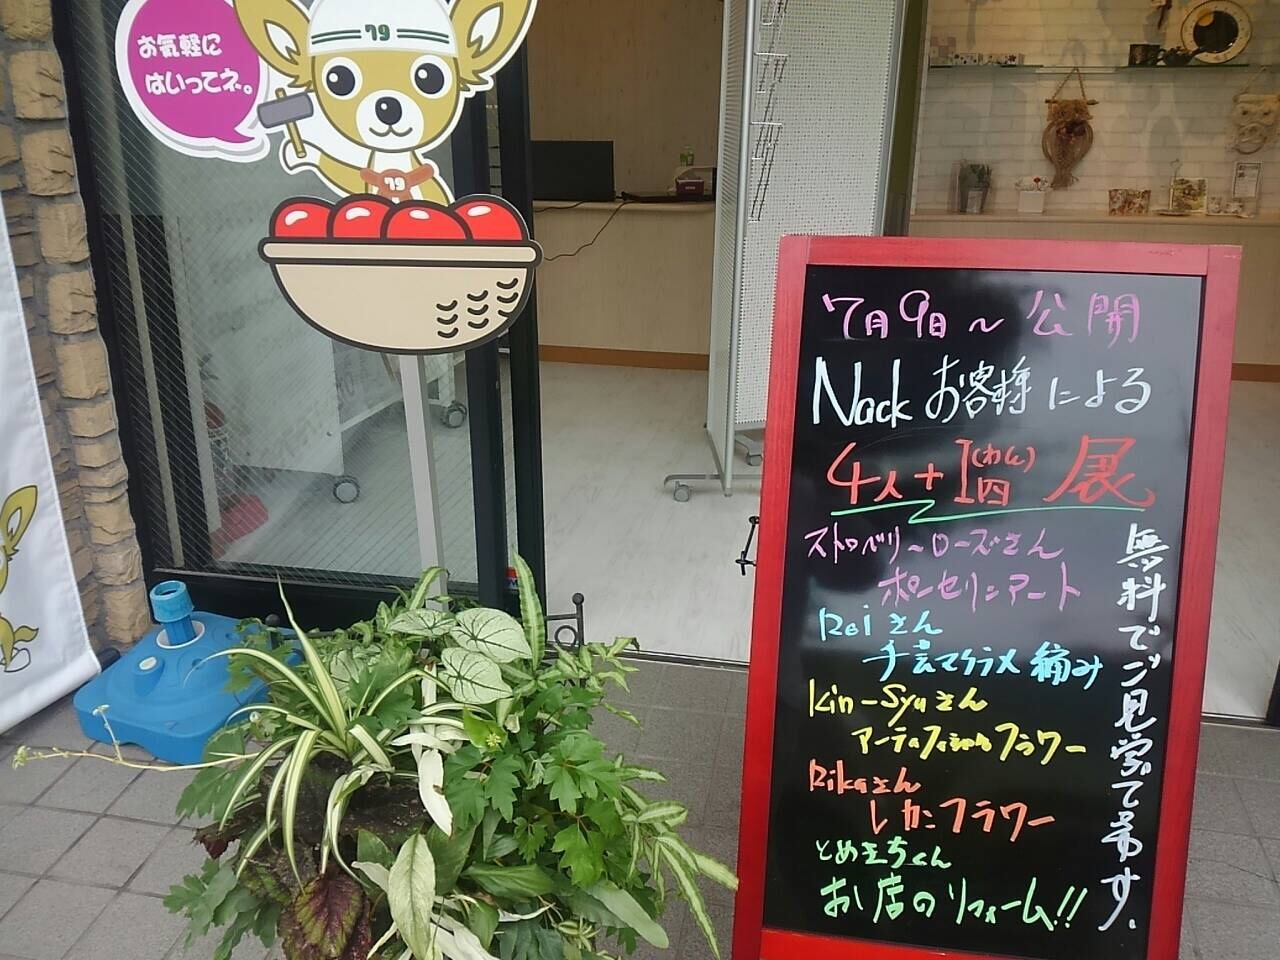 お気軽に
はいってネ。
79
79
7月9日~公開
Nackお客様による
4人+1(わん)
展
ストロベリーローズさん
ポーセリンアート
Reiさん
手芸マクラメ編み
Kin-Syuさん
アーティフィシャルフラワー
Rikaさん
レカンフラワー
とめ吉ちくん
お店のリフォーム!!
無料でご見学できます。